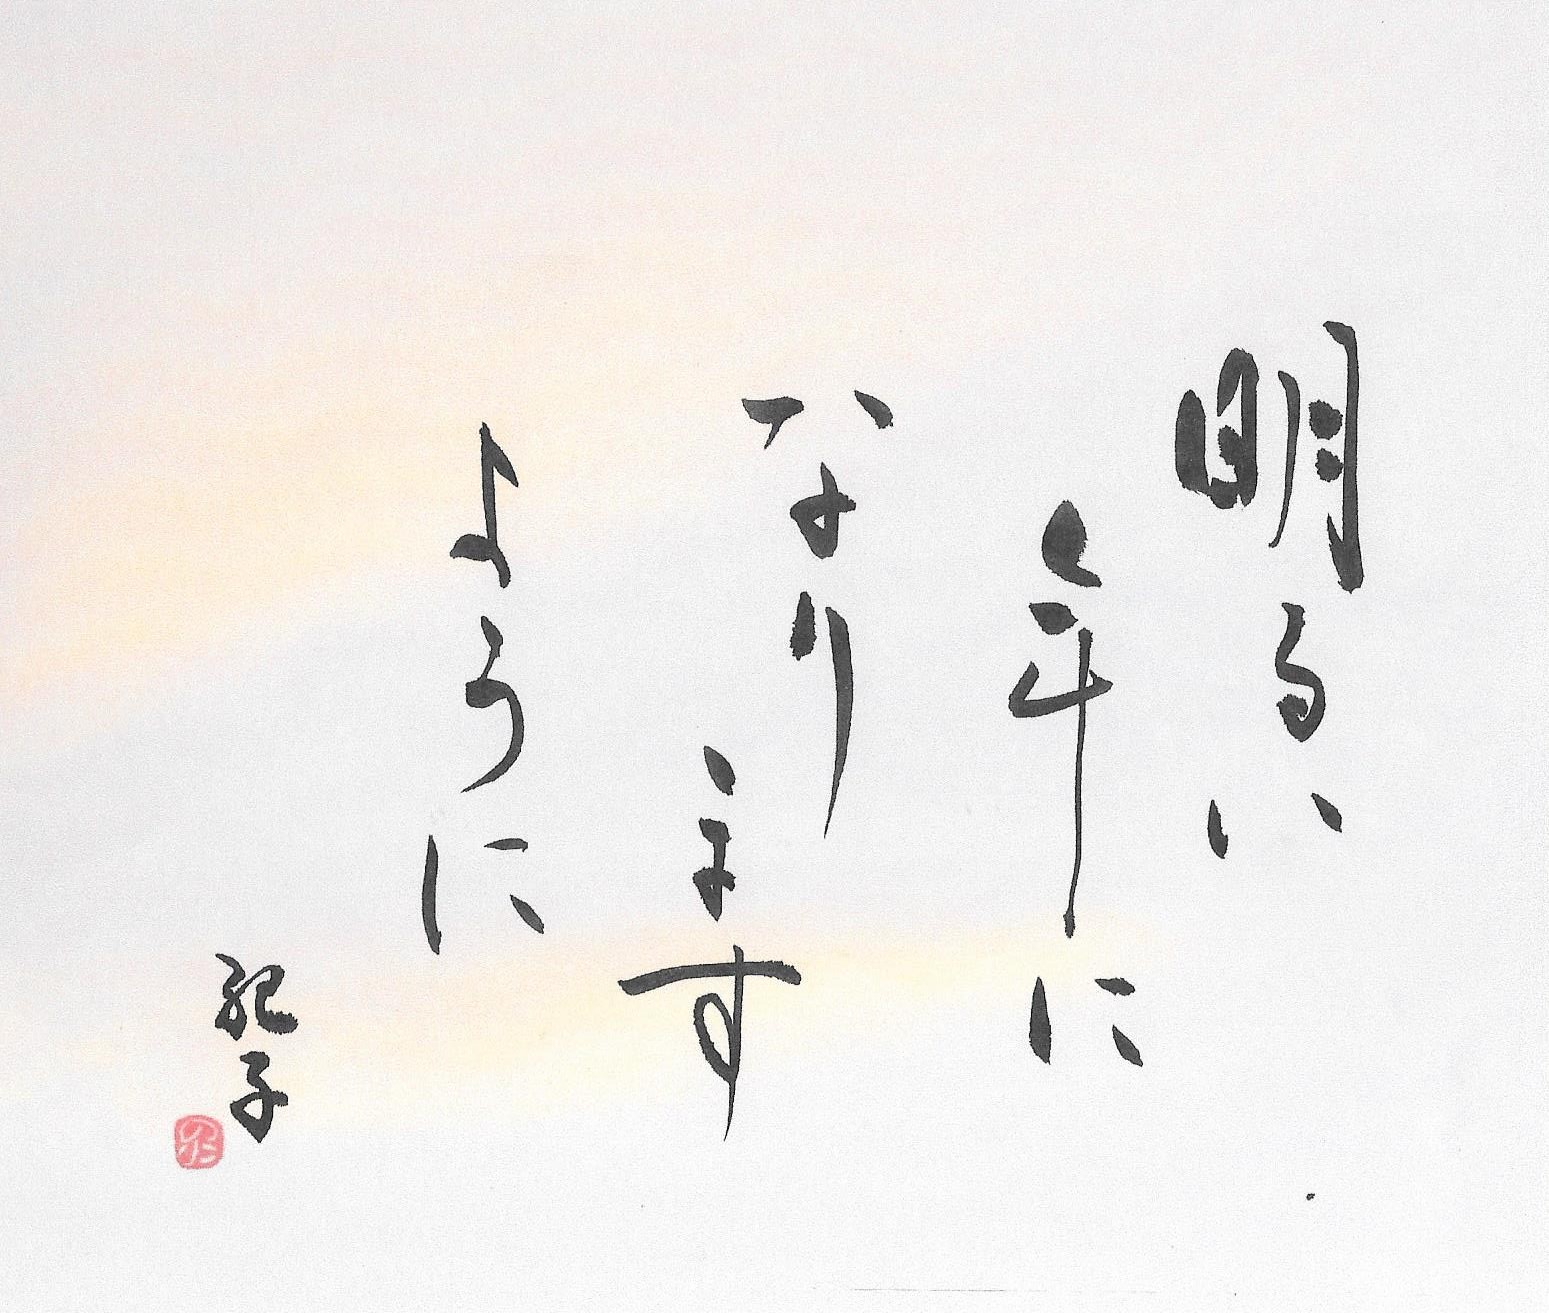 明るい
年に
なります
ように
紀子